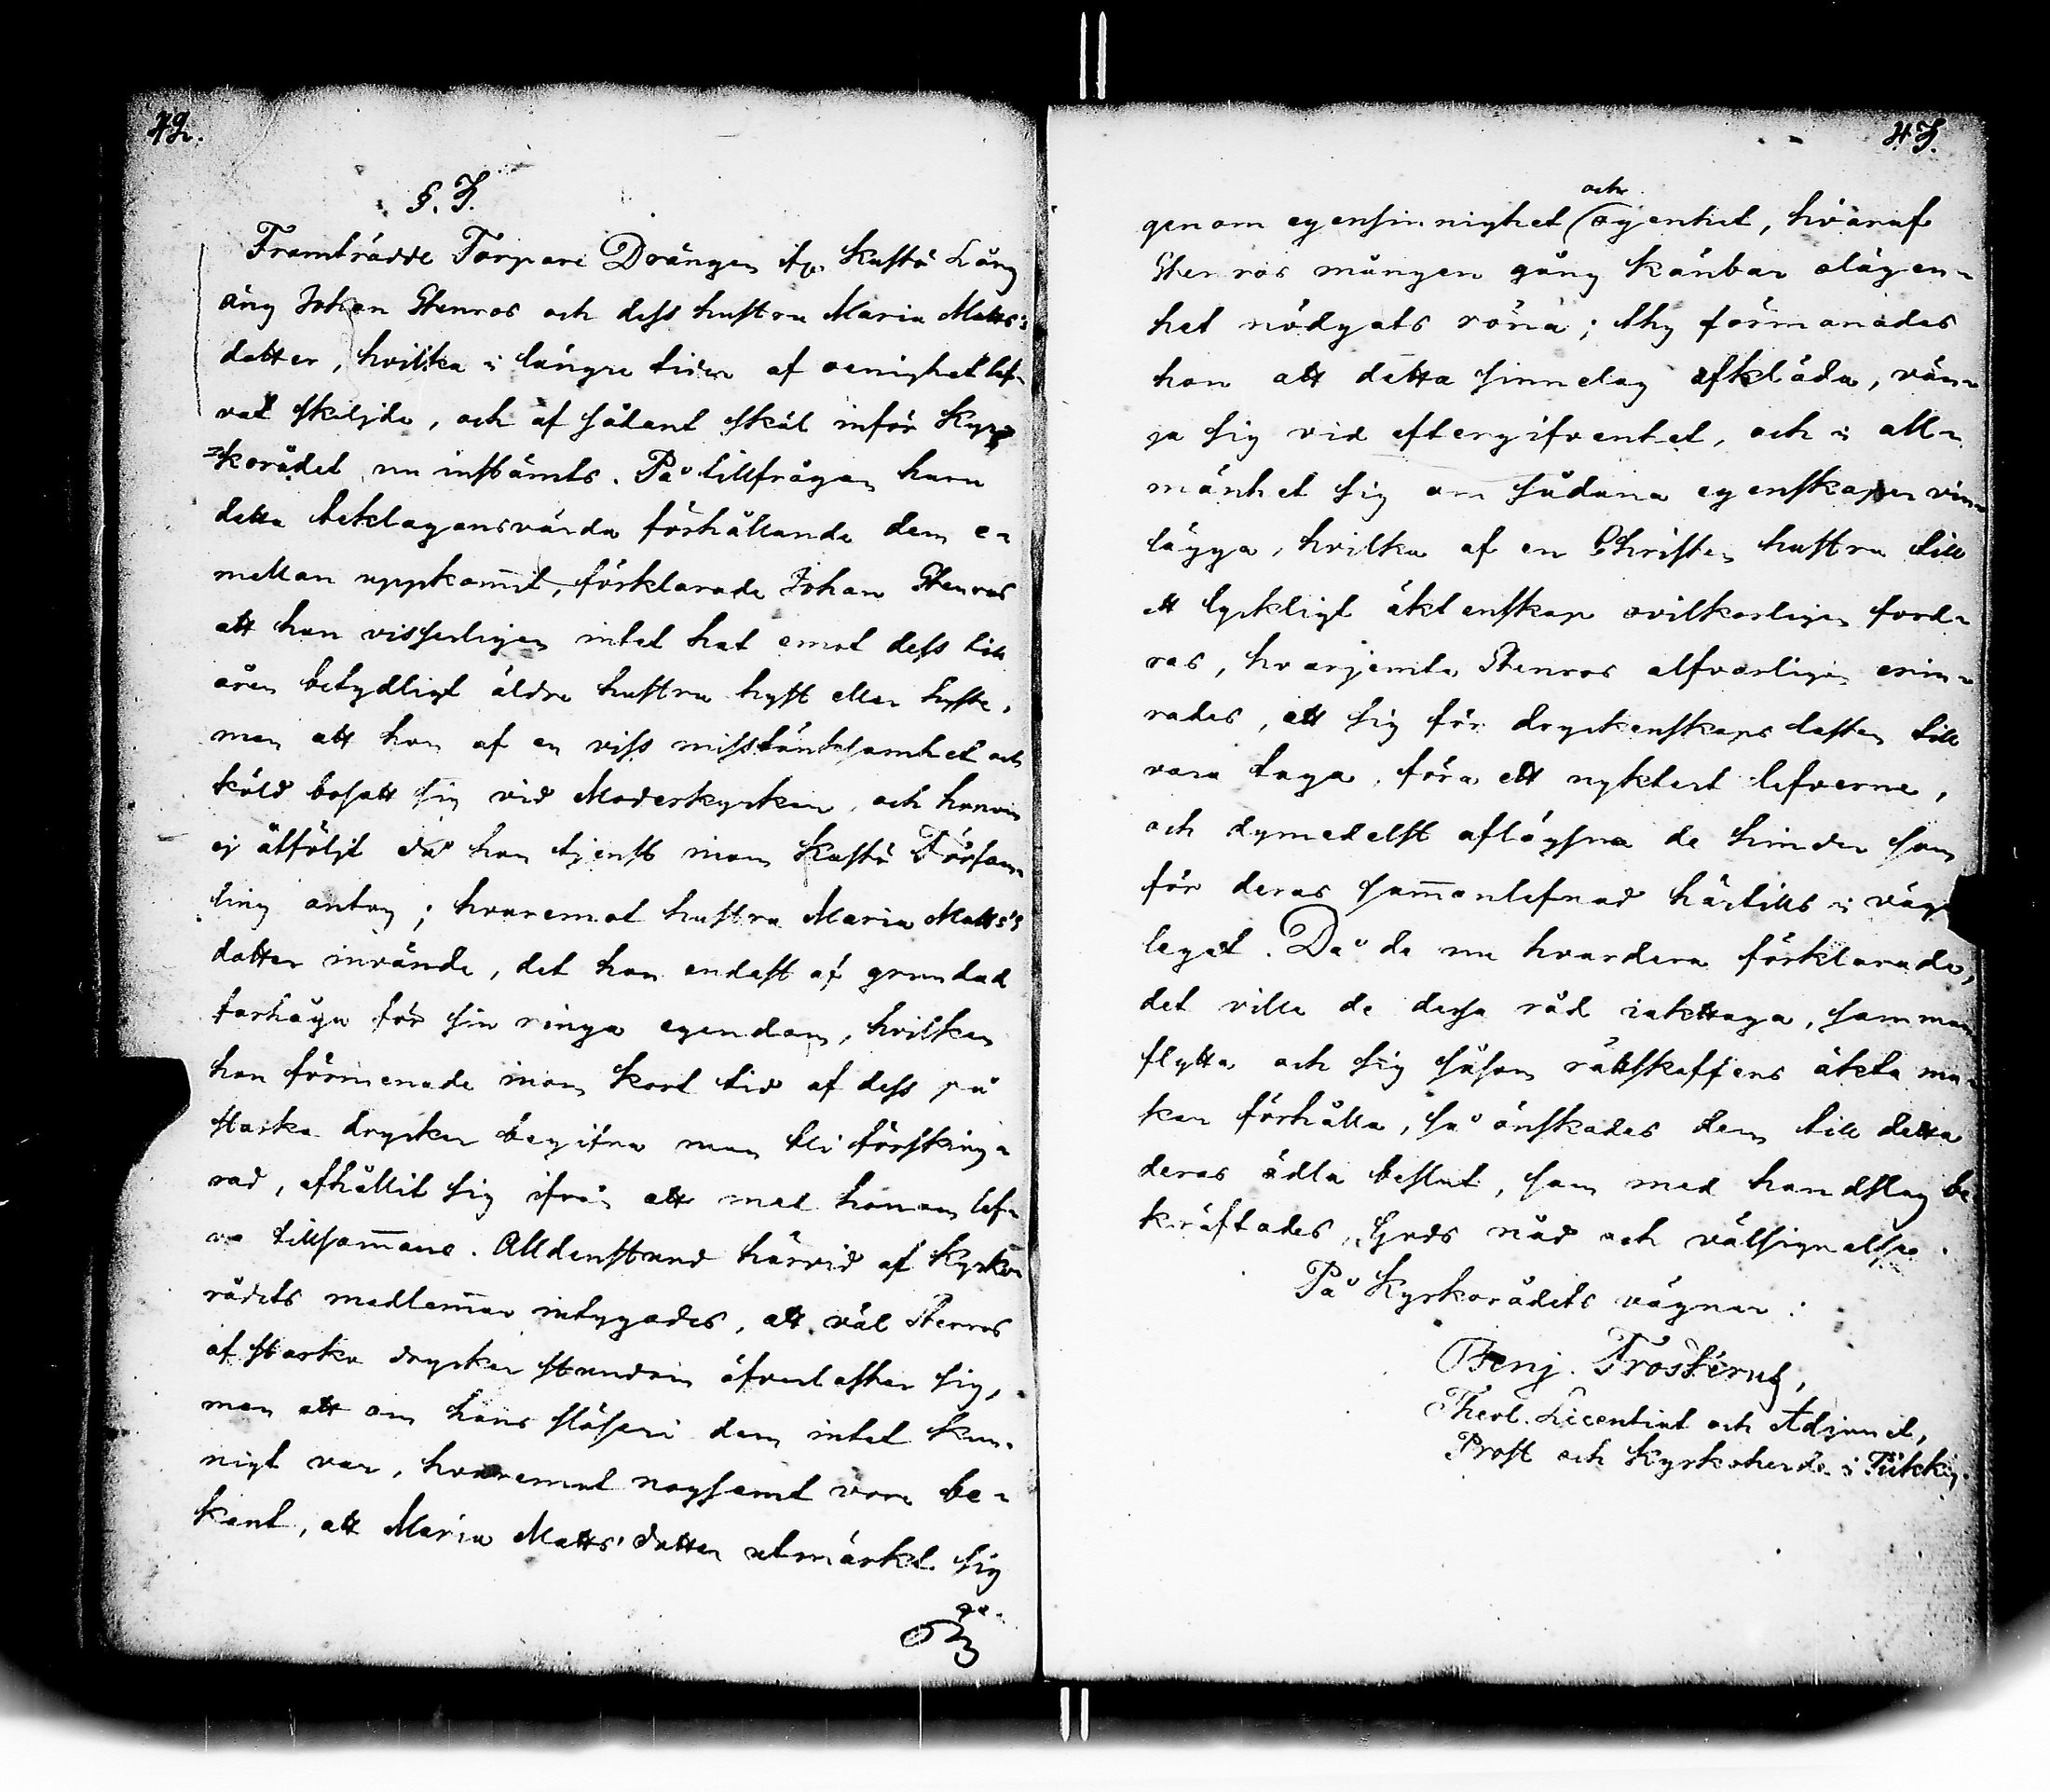 42.
§. 3.
Framträdde Torpare Drängen fr. Kustö Lång
äng Johan Stenros och dess hustru Maria Matts:
dotter, hvilka i längre tider af oenighet lef-
vat skiljde, och af sådant skäl inför Kyr-
korådet nu instämts. På tillfrågan huru
detta beklagansvärda förhållande dem e-
mellan uppkom̄it, förklarade Johan Stenros
att han visserligen intet hat emot dess till
åren betydligt äldre hustru hyst eller hyste,
men att hon af en viss misstänksamhet och
köld bosatt sig vid Moderkyrkan, och honom
ej åtföljt då han tjenst inom Kustö Försam-
ling antog; hvaremot hustru Maria Matts:
dotter invände, det hon endast af grundad
farhåga för sin ringa egendom, hvilken
hon förmenade inom kort tid af dess på
starka drycker begifna man bli försking-
rad, afhållit sig ifrån att med honom lef-
va tillsam̄ans. Alldenstund härvid af Kyrko-
rådets medlem̄ar intygades, att väl Stenros
af starka drycker stundom öfverlastar sig,
men att om hans slöseri dem intet kun-
nigt var, hvaremot nogsamt vore be-
kant, att Maria Matts dotter utmärkt sig
ge-
43.
och
genom egensinnighet (ogenhet, hvaraf
Stenros mången gång känbar olägen-
het nödgats röna; thy förmanades
hon att detta sinnelag afkläda, vän-
ja sig vid eftergifvenhet, och i all-
mänhet sig om sådana egenskaper vin-
lägga, hvilka af en Christen hustru till
ett lyckligt äktenskap ovilkorligen ford-
ras, hvarjemte Stenros alfvarligen erin-
rades, att sig för dryckenskaps lasten till
vara taga, föra ett nyktert lefverne,
och dymedelst aflägsna de hinder som
för deras sam̄anlefnad härtills i väge
legat. Då de nu hvardera förklarade,
det ville de dessa råd iakttaga, samman
flytta och sig såsom rättskaffens äkta ma-
kar förhålla, så önskades dem till detta
deras ädla beslut, som med handslag be-
kräftades, Guds nåd och välsignelse.
På Kyrkorådets vägnar:
Benj. Frosterus,
Theol. Licentiat och Adjunct,
Prost och Kyrkoherde i Piikkis.